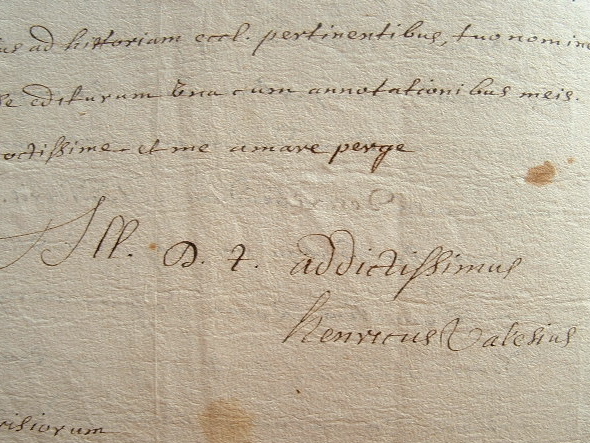 ius ad historiam eccl. pertinentibus, tuo nomine
se editurum una cum annotationibus meis.
octissime et me amare perge
Ill. D. t. addictissimus
henricus Valesius
risiorum